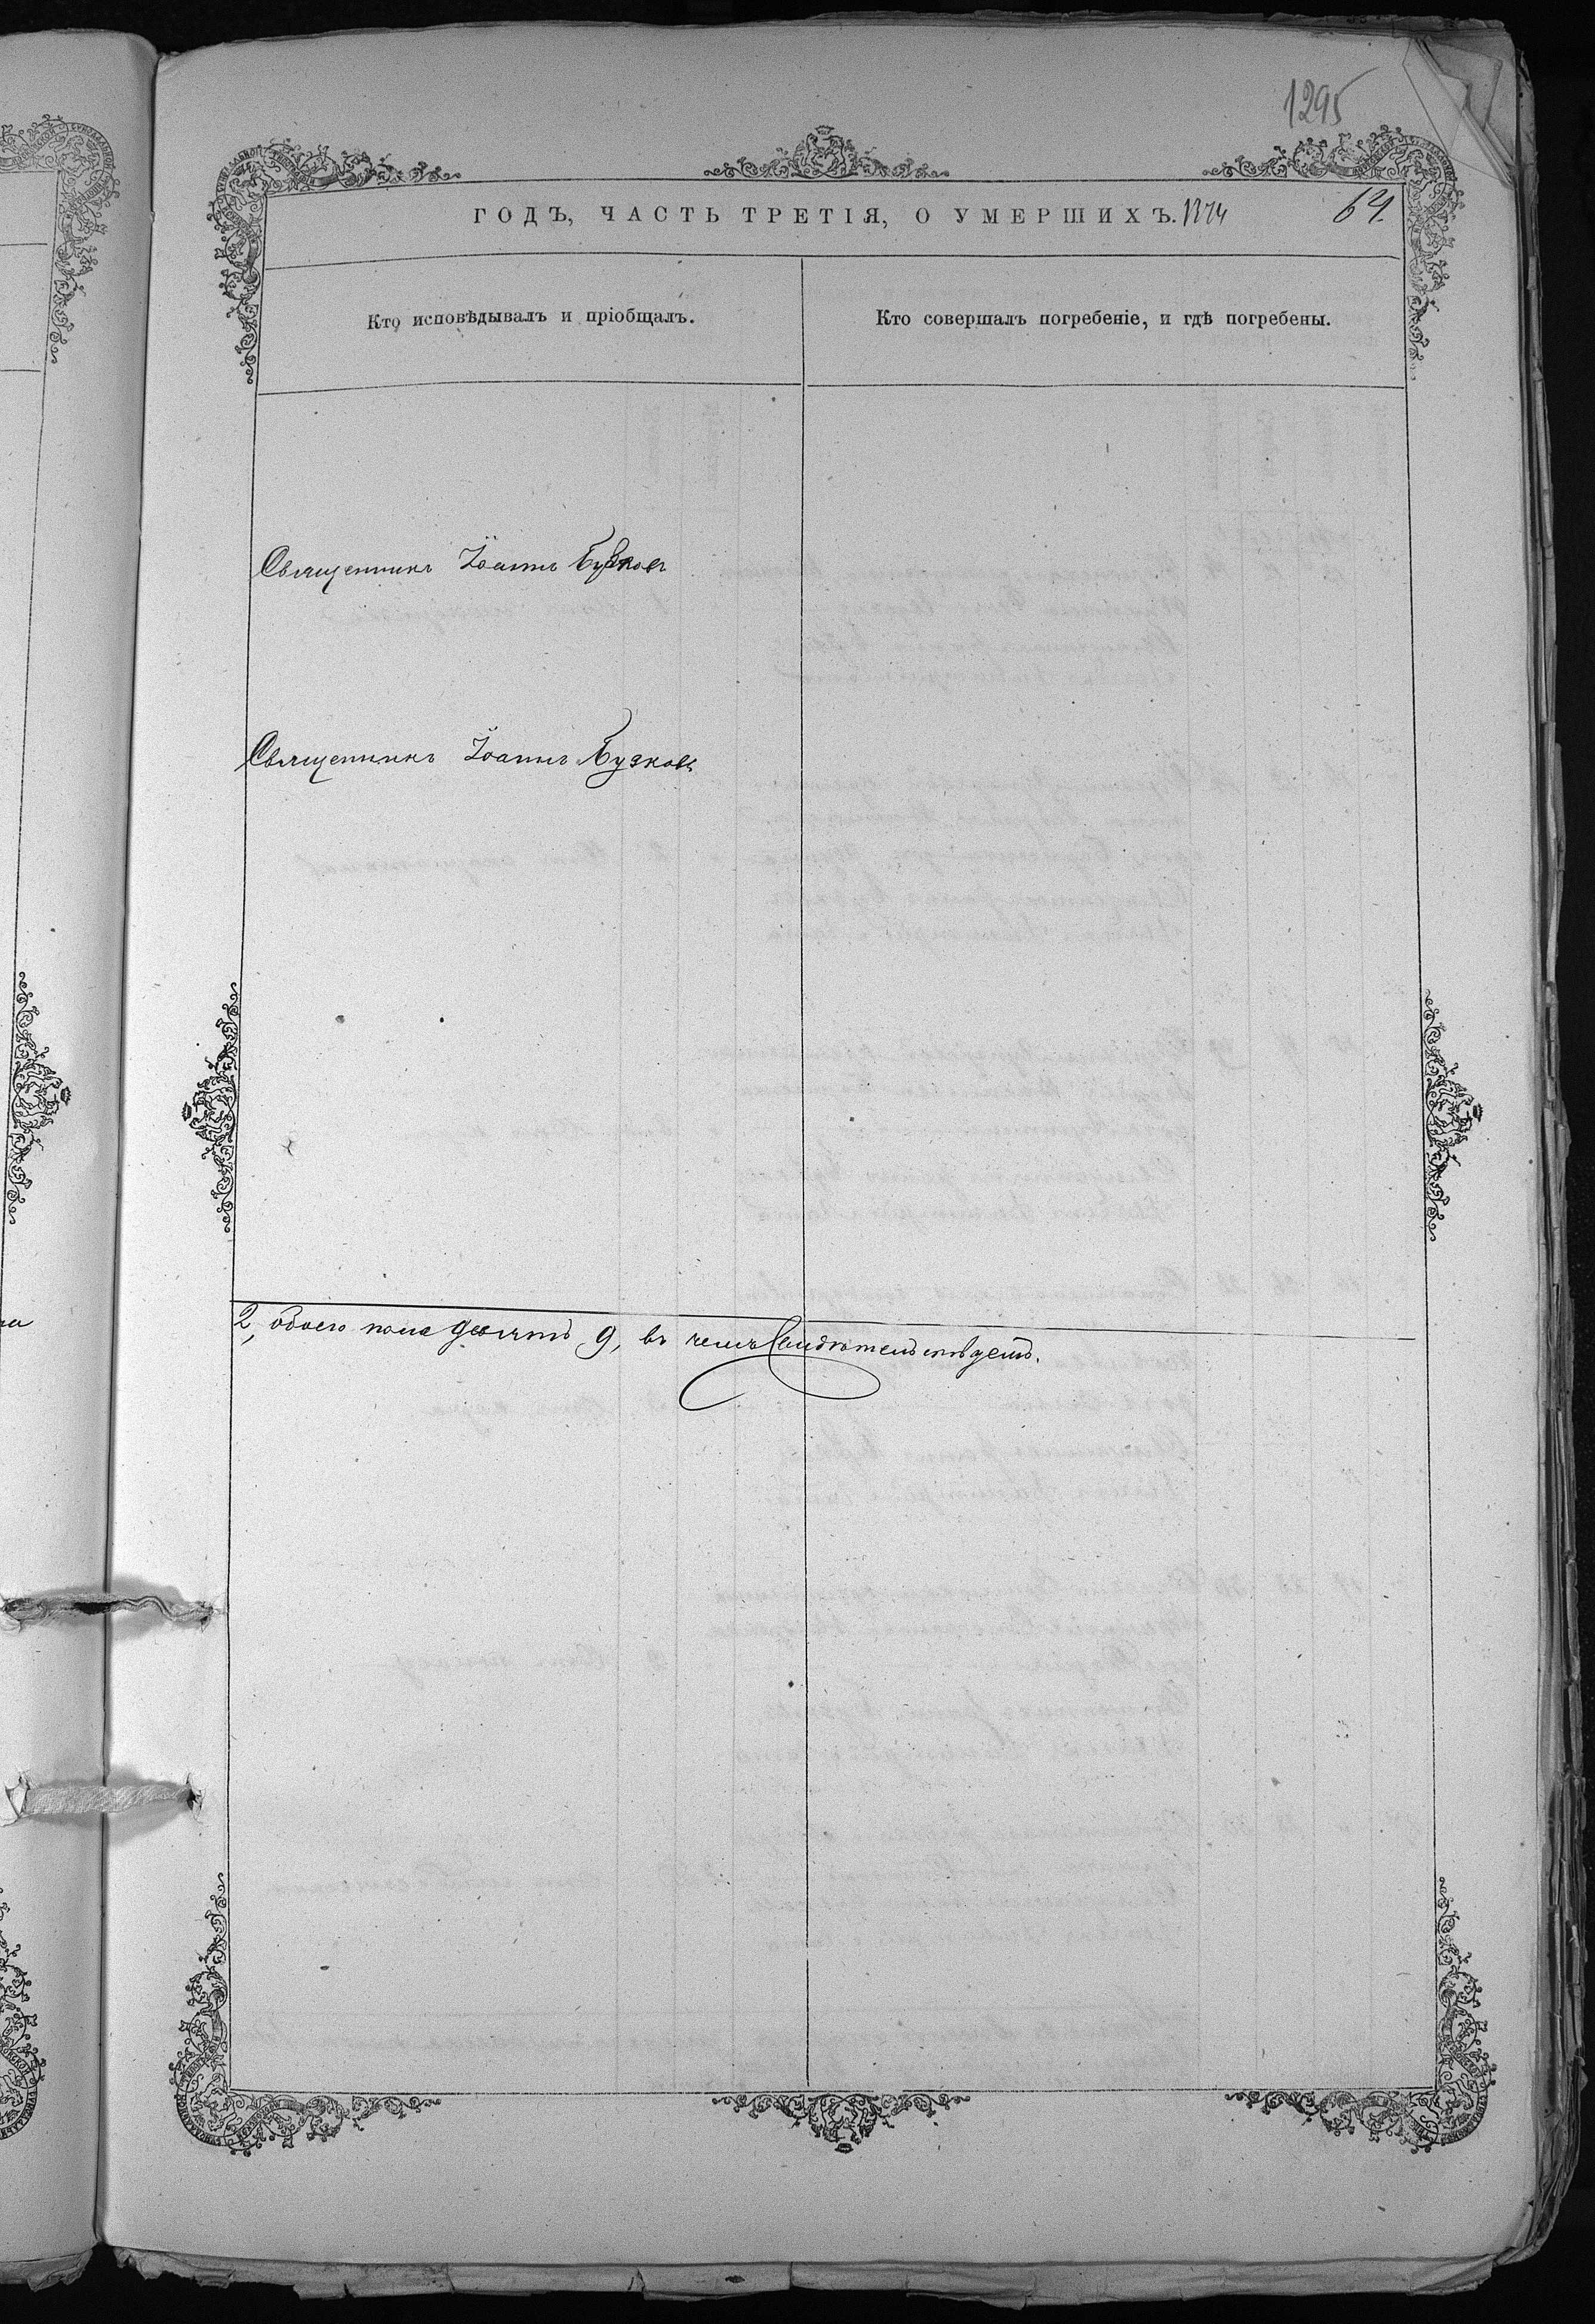 1295
ГОДЪ, ЧАСТЬ ТРЕТІЯ, О УМЕРШИХЪ. 1874
64.
Кто исповѣдывалъ и пріобщалъ.
Кто совершалъ погребеніе, и гдѣ погребены.
Священникъ Іоаннъ Бузковъ
Священникъ Іоаннъ Бузковъ
2, обоего пола девять 9, въ чемъ Свидѣтельствуемъ.